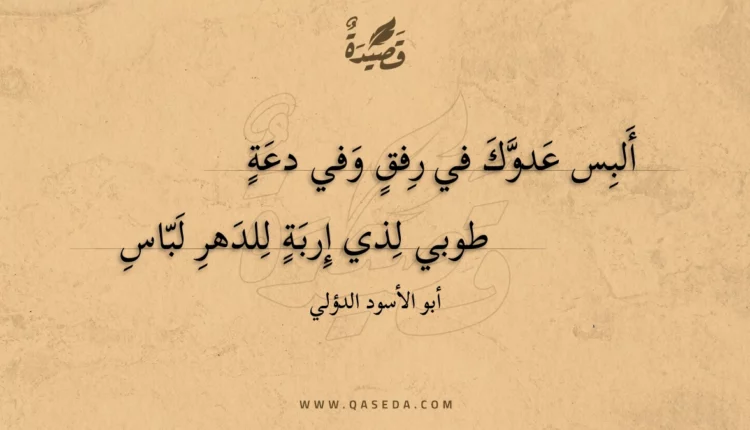 قَصِيْدَةٌ
أَلبِس عَدوَّكَ في رِفقٍ وَفي دعَةٍ
طوبي لِذي إِربَةٍ لِلدَهرِ لَبّاسِ
أبو الأسود الدؤلي
WWW.QASEDA.COM